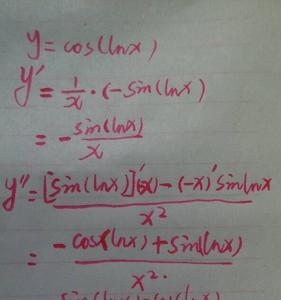 y = cos(lnx)
y' = 1/x · (-sin(lnx)
= - sin(lnx)/x
y'' = [sin(lnx)]'(-x) - (-x)'sinlnx / x²
= -cos(lnx) + sin(lnx) / x².